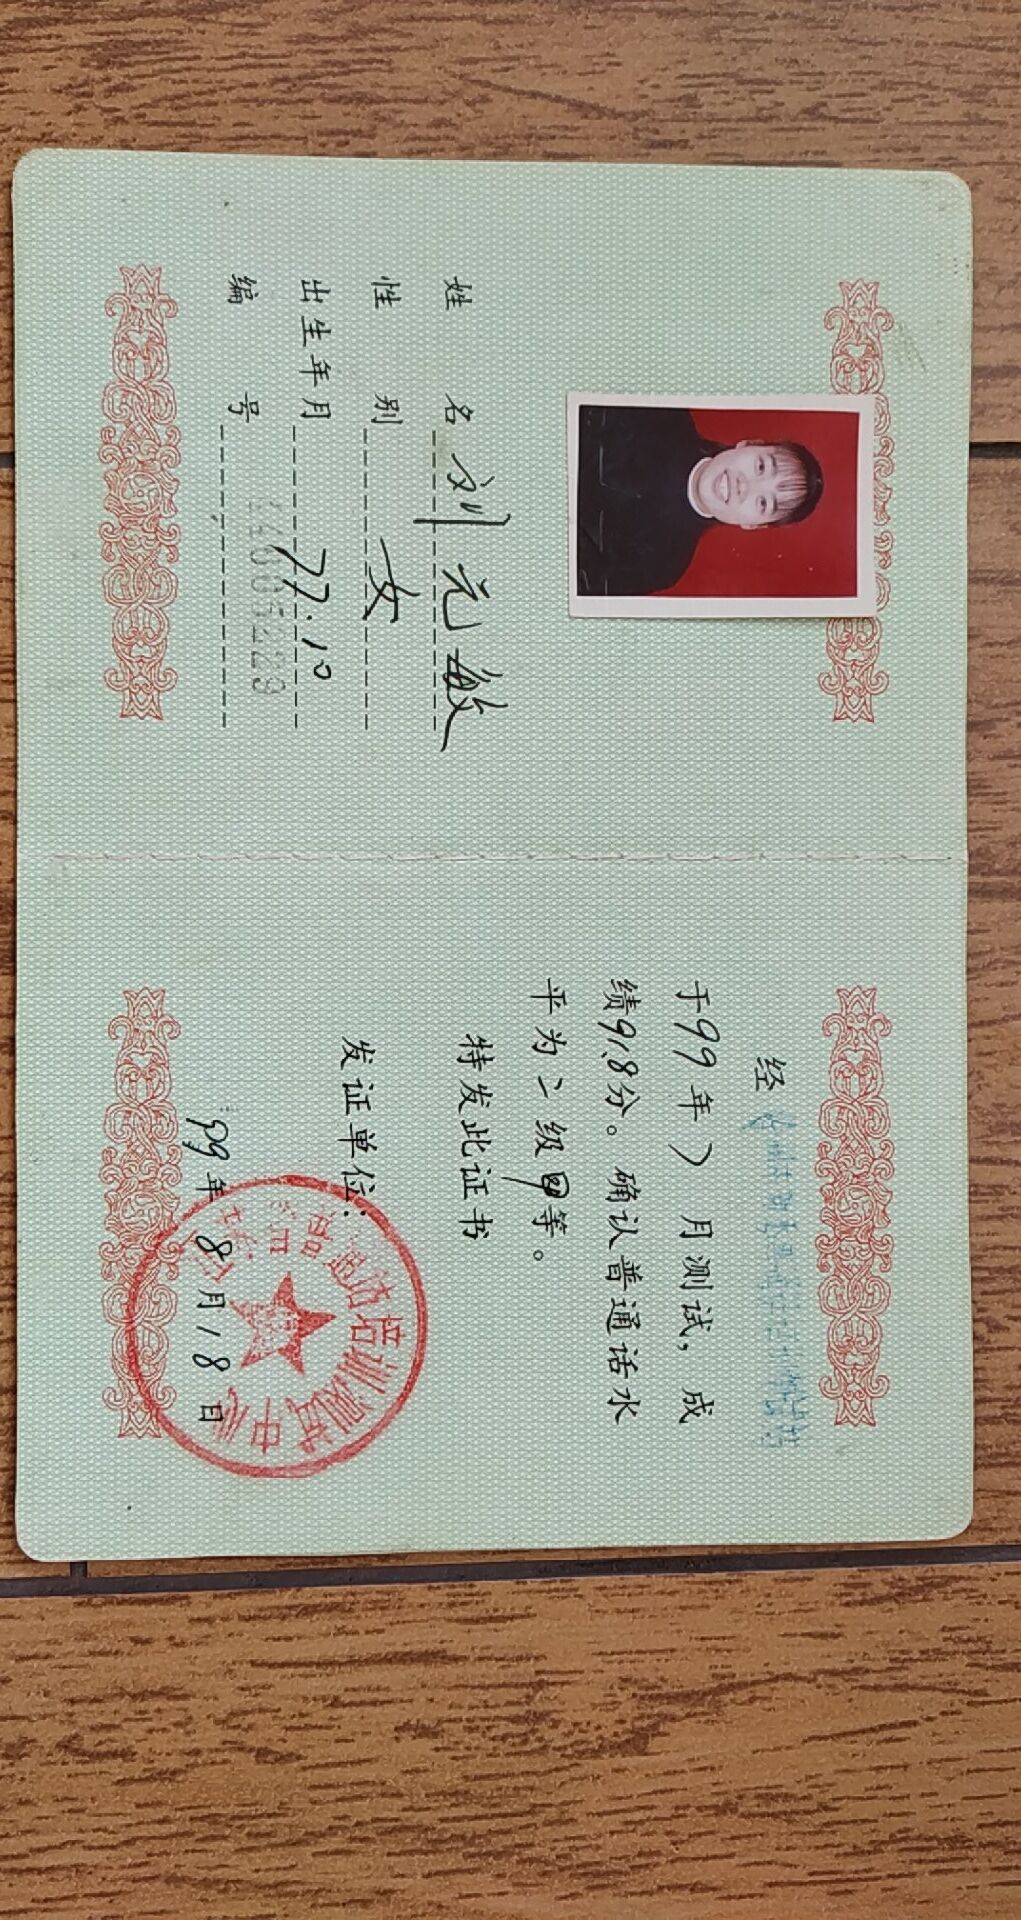 姓 名 刘元敏
性 别 女
出生年月 77.10
编 号
经
于99年7月测试，成
绩91.8分。确认普通话水
平为二级甲等。
特发此证书
发证单位：
99年8月18日
普通话培训测试中心